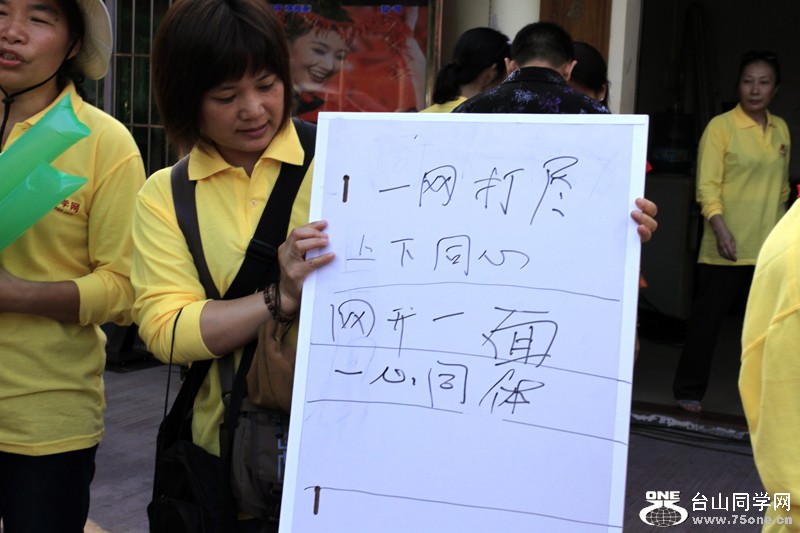 一网打尽
上下同心
网开一面
一心同体
ONE
台山同学网
www.75one.cn